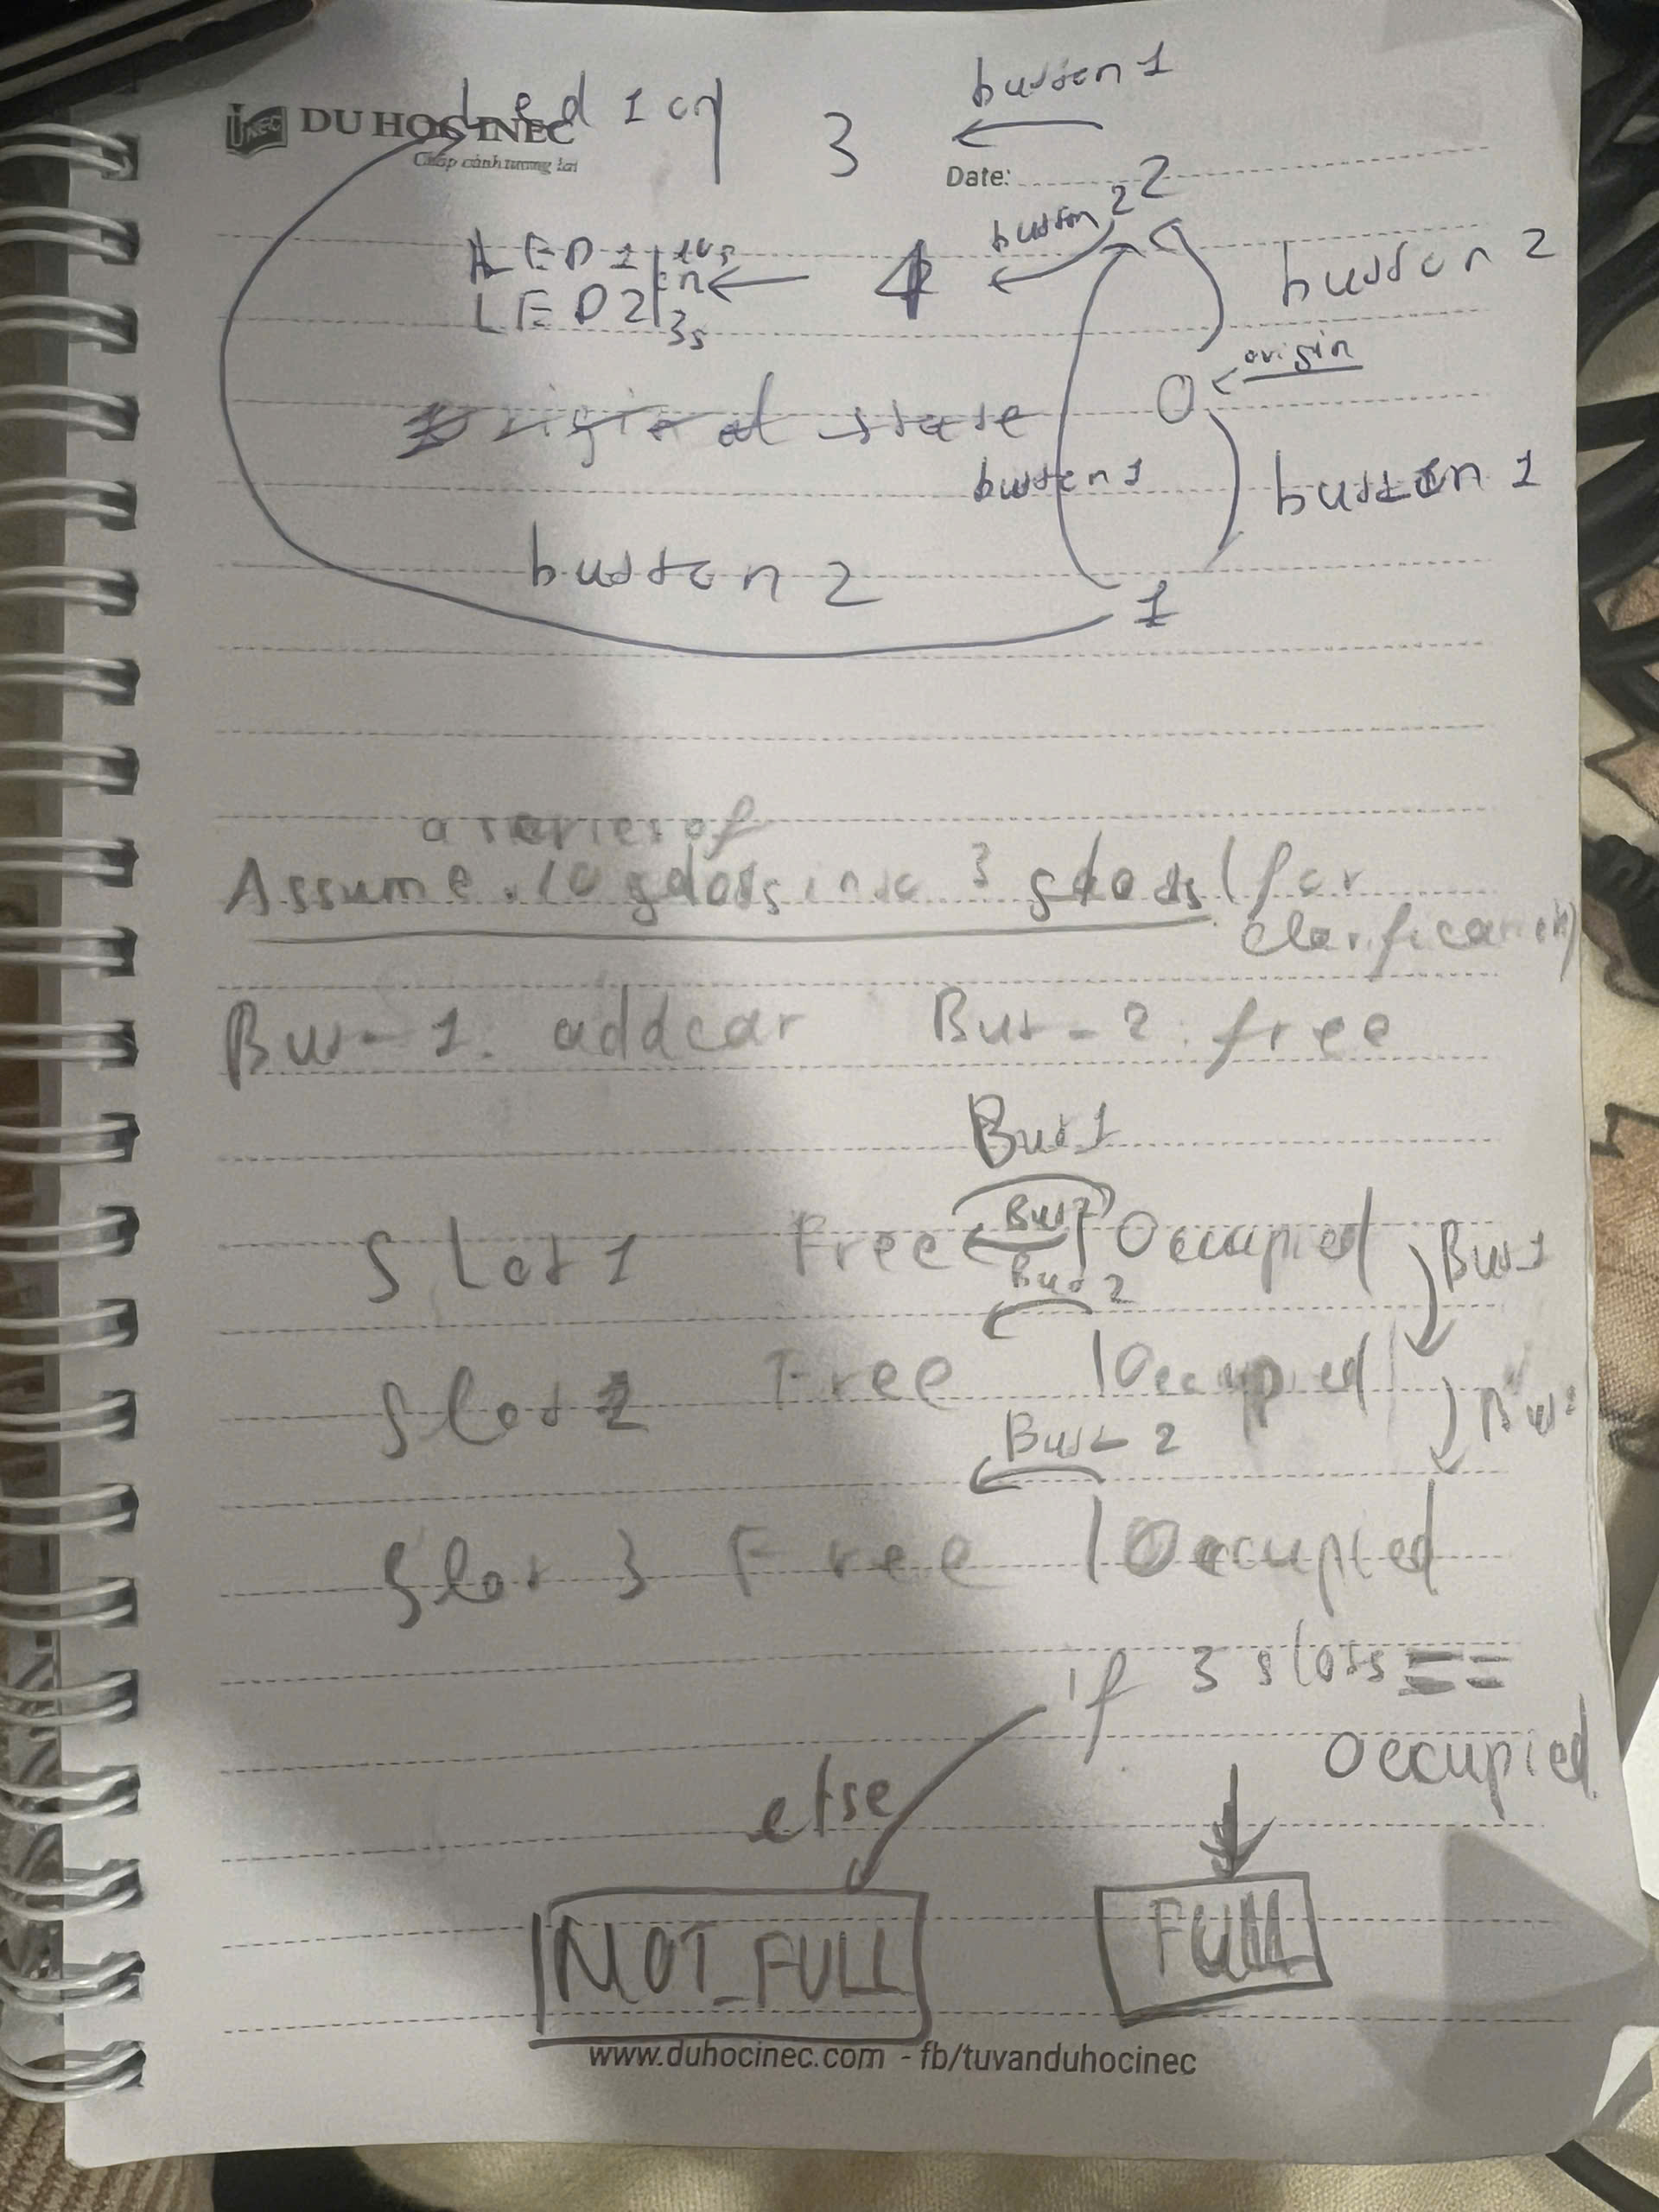 Led 1 on
3
button 1
DU HOC INEC
Chắp cánh tương lai
Date:
2
button 2
LED1 10s
LED2 on 3s
4
button 2
origin
0
original state
button 1
button 1
button 2
1
a series of
Assume 10 slots into 3 slots (for
clarification)
But-1: add car But-2: free
But 1
Slot 1 Free But 2 Occupied But 1
But 2
Slot 2 Free Occupied
But-2
Slot 3 Free Occupied
if 3 slots ==
occupied
else
NOT_FULL FULL
www.duhocinec.com - fb/tuvanduhocinec